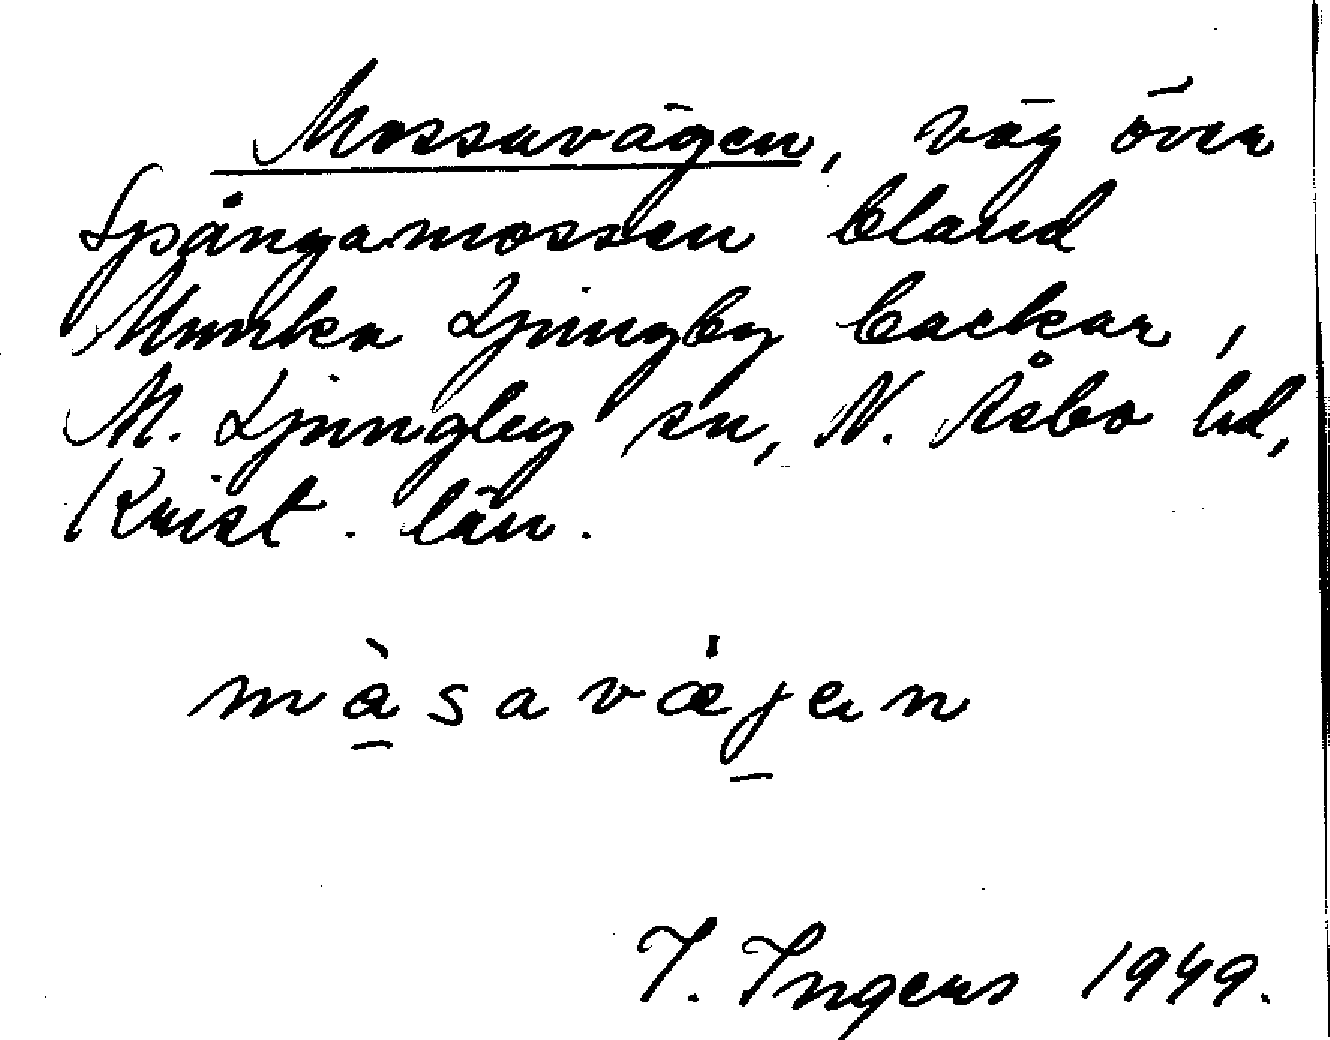 Mossavägen, väg över
Spångamossen bland
Munka Ljungby backar,
M. Ljungby sn, N. Åsbo hd,
Krist. län.
måsavæjen
I. Ingers 1949.